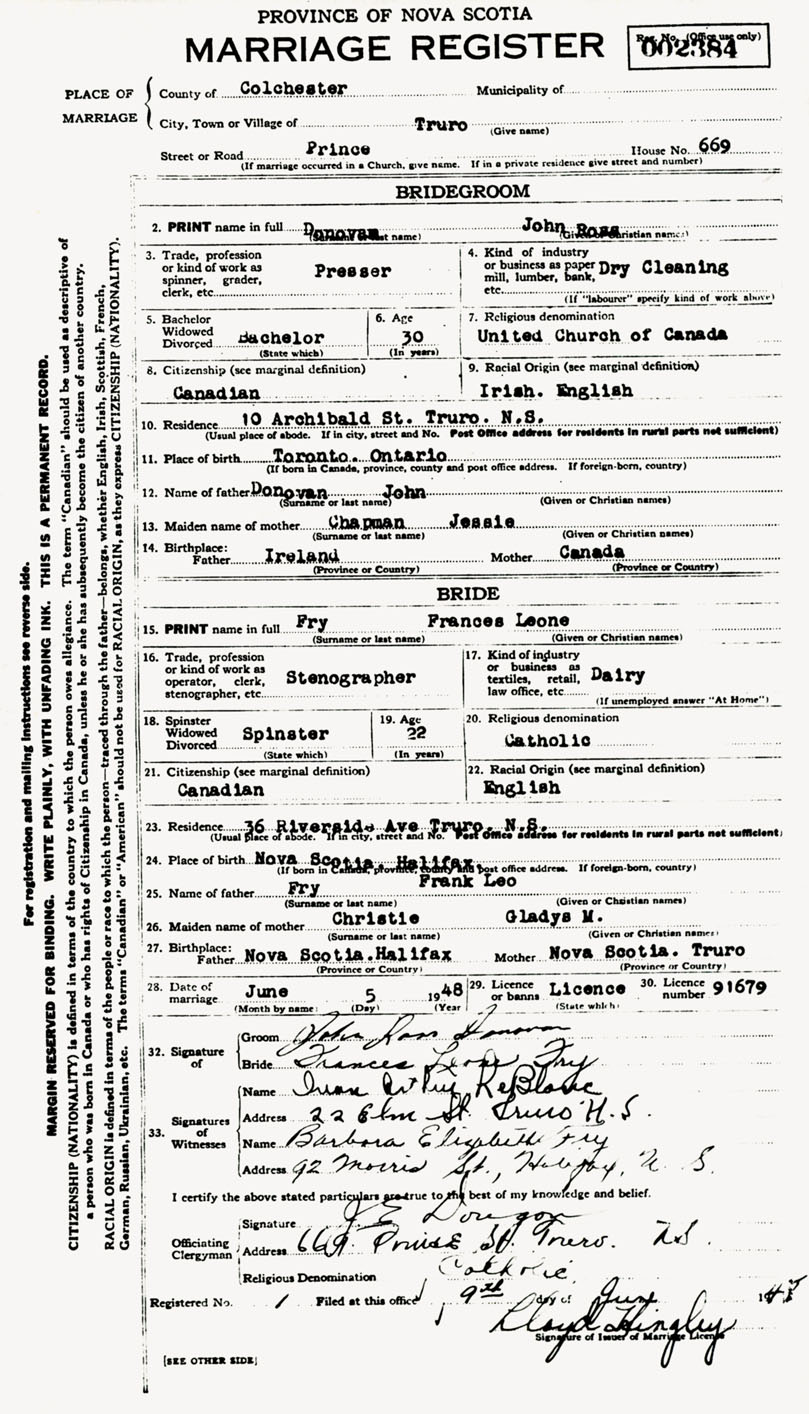 PROVINCE OF NOVA SCOTIA
MARRIAGE REGISTER
Reg. No. (Office use only)
002384
PLACE OF MARRIAGE
County of Colchester Municipality of
City, Town or Village of Truro
(Give name)
Street or Road Prince House No. 669
(If marriage occurred in a Church, give name. If in a private residence give street and number)
BRIDEGROOM
2. PRINT name in full Donovan John Ross
(Surname or last name) (Given or Christian names)
3. Trade, profession or kind of work as spinner, grader, clerk, etc. Presser
4. Kind of industry or business as paper mill, lumber, bank, etc. Dry Cleaning
(If "labourer" specify kind of work above)
5. Bachelor Widowed Divorced Bachelor
(State which)
6. Age 30
(In years)
7. Religious denomination
United Church of Canada
8. Citizenship (see marginal definition)
Canadian
9. Racial Origin (see marginal definition)
Irish. English
10. Residence 10 Archibald St. Truro. N.S.
(Usual place of abode. If in city, street and No. Post Office address for residents in rural parts not sufficient)
11. Place of birth Toronto. Ontario
(If born in Canada, province, county and post office address. If foreign-born, country)
12. Name of father Donovan John
(Surname or last name) (Given or Christian names)
13. Maiden name of mother Chapman Jessie
(Surname or last name) (Given or Christian names)
14. Birthplace:
Father Ireland Mother Canada
(Province or Country) (Province or Country)
BRIDE
15. PRINT name in full Fry Frances Leone
(Surname or last name) (Given or Christian names)
16. Trade, profession or kind of work as operator, clerk, stenographer, etc. Stenographer
17. Kind of industry or business as textiles, retail, law office, etc. Dairy
(If unemployed answer "At Home")
18. Spinster Widowed Divorced Spinster
(State which)
19. Age
22
(In years)
20. Religious denomination
Catholic
21. Citizenship (see marginal definition)
Canadian
22. Racial Origin (see marginal definition)
English
23. Residence 36 Riverside Ave Truro. N.S.
(Usual place of abode. If in city, street and No. Post Office address for residents in rural parts not sufficient)
24. Place of birth Nova Scotia. Halifax
(If born in Canada, province, county and post office address. If foreign-born, country)
25. Name of father Fry Frank Leo
(Surname or last name) (Given or Christian names)
26. Maiden name of mother Christie Gladys M.
(Surname or last name) (Given or Christian names)
27. Birthplace:
Father Nova Scotia.Halifax Mother Nova Scotia. Truro
(Province or Country) (Province or Country)
28. Date of marriage June 5 1948
(Month by name) (Day) (Year)
29. Licence or banns Licence
(State which)
30. Licence number 91679
32. Signature of
Groom John Ross Donovan
Bride Frances Leone Fry
33. Signatures of Witnesses
Name Arthur LeBlanc
Address 22 Elm St. Truro N.S.
Name Barbara Elizabeth Fry
Address 92 Morris St., Halifax, N.S.
I certify the above stated particulars are true to the best of my knowledge and belief.
Officiating Clergyman
Signature
Address 669 Prince St. Truro. N.S.
Religious Denomination Catholic
Registered No. 1 Filed at this office 9th day of June 1948
Lloyd Hingley
Signature of Issuer of Marriage Licence
[SEE OTHER SIDE]
For registration and mailing instructions see reverse side.
MARGIN RESERVED FOR BINDING. WRITE PLAINLY, WITH UNFADING INK. THIS IS A PERMANENT RECORD.
CITIZENSHIP (NATIONALITY) is defined in terms of the country to which the person owes allegiance. The term "Canadian" should be used as descriptive of
a person who was born in Canada or who has rights of Citizenship in Canada, unless he or she has subsequently become the citizen of another country.
RACIAL ORIGIN is defined in terms of the people or race to which the person—traced through the father—belongs, whether English, Irish, Scottish, French,
German, Russian, Ukrainian, etc. The terms "Canadian" or "American" should not be used for RACIAL ORIGIN, as they express CITIZENSHIP (NATIONALITY).